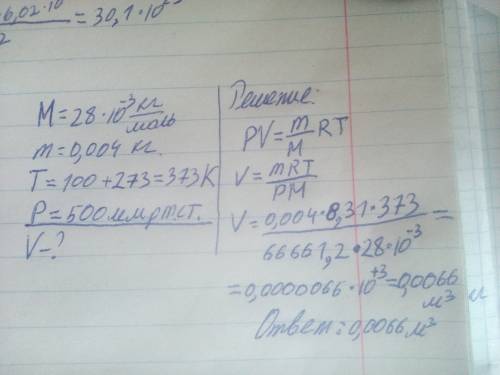 6,02·10 = 30,1·10
2
M=28·10⁻³ кг/моль
m=0,004 кг.
T=100+273=373K
P=500мм.рт.ст.
V-?
Решение:
PV=m/M RT
V=mRT/PM
V=0,004·8,31·373 / 66661,2·28·10⁻³ =
=0,0000066·10⁺³=0,0066 м³
Ответ:0,0066м³